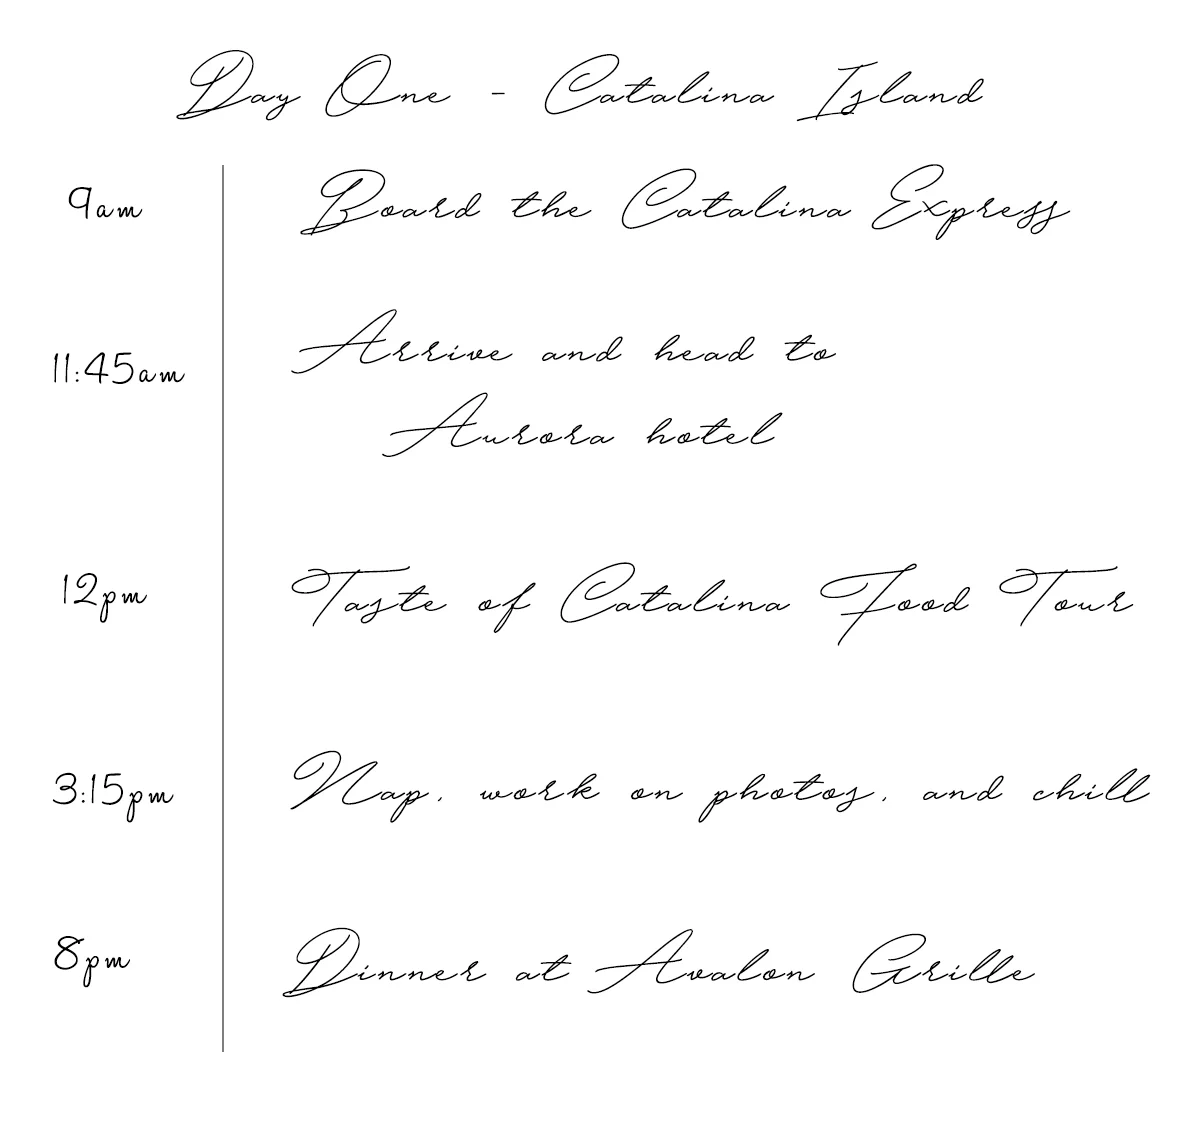 Day One - Catalina Island
9am Board the Catalina Express
11:45am Arrive and head to
Aurora hotel
12pm Taste of Catalina Food Tour
3:15pm Nap, work on photos, and chill
8pm Dinner at Avalon Grille